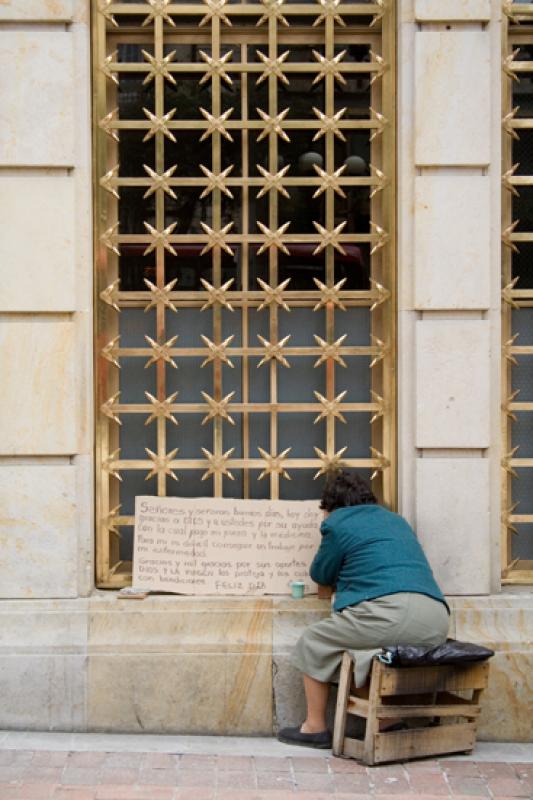 Señores y señoras buenos días, hoy doy
gracias a DIOS y a ustedes por su ayuda
con la cual pago mi pieza y la medicina.
Para mi es difícil conseguir un trabajo por
mi enfermedad.
Gracias y mil gracias por sus aportes
DIOS Y LA VIRGEN los proteja y los
con bendiciones. FELIZ DIA